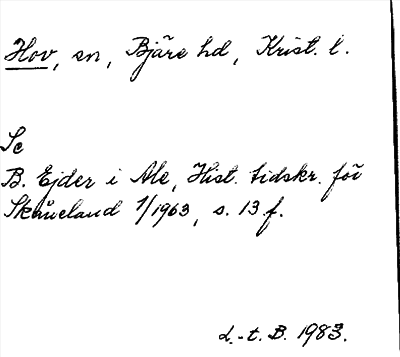 Hov, sn, Bjäre hd, Krist. l.
Se
B. Ejder i Ale, Hist. tidskr. för
Skåneland 1/1963, s. 13 f.
L.-t. B. 1983.